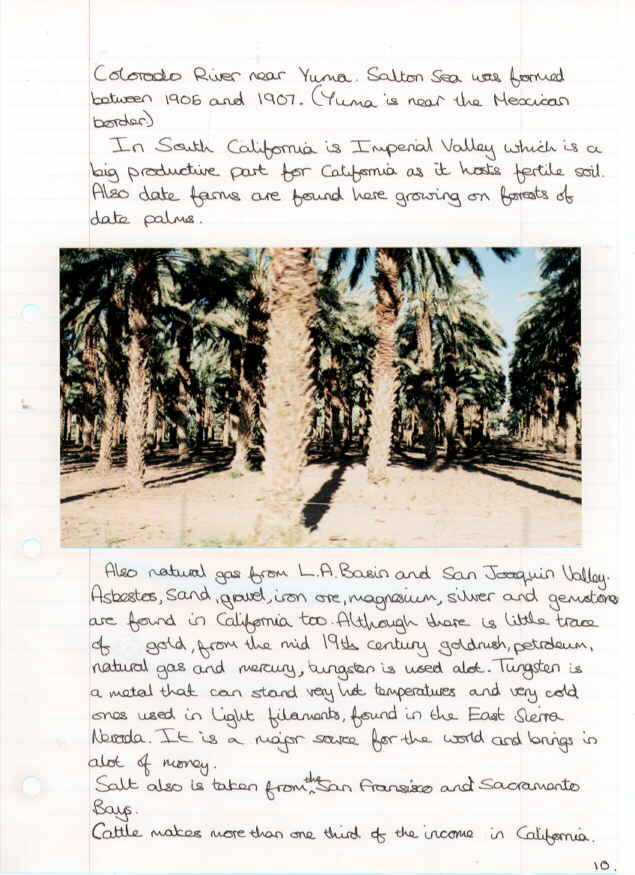 Colorado River near Yuma. Salton Sea was formed
between 1905 and 1907. (Yuma is near the Mexican
border)
In South California is Imperial Valley which is a
big productive part for California as it hosts fertile soil.
Also date farms are found here growing on forests of
date palms.
Also natural gas from L.A. Basin and San Joaquin Valley.
Asbestos, sand, gravel, iron ore, magnesium, silver and gemstones
are found in California too. Although there is little trace
of gold, from the mid 19th century goldrush, petroleum,
natural gas and mercury, tungsten is used alot. Tungsten is
a metal that can stand very hot temperatures and very cold
ones used in light filaments, found in the East Sierra
Nevada. It is a major source for the world and brings in
alot of money.
Salt also is taken from the San Fransisco and Sacramento
Bays.
Cattle makes more than one third of the income in California.
10.